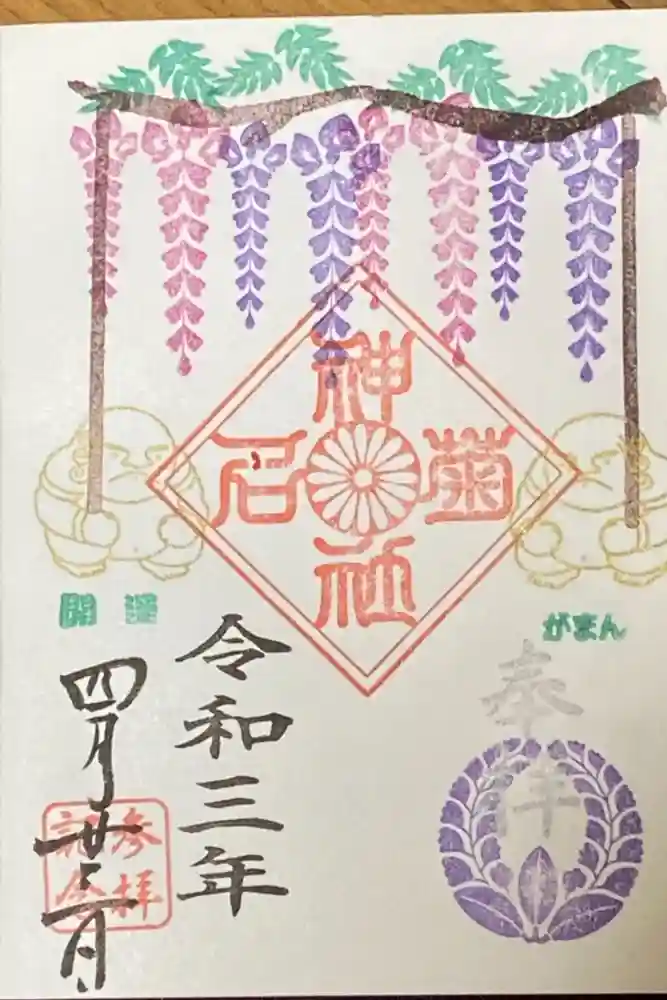 菊名
神社
がまん
開運
奉拝
令和三年
四月廿三日
参拝
記念